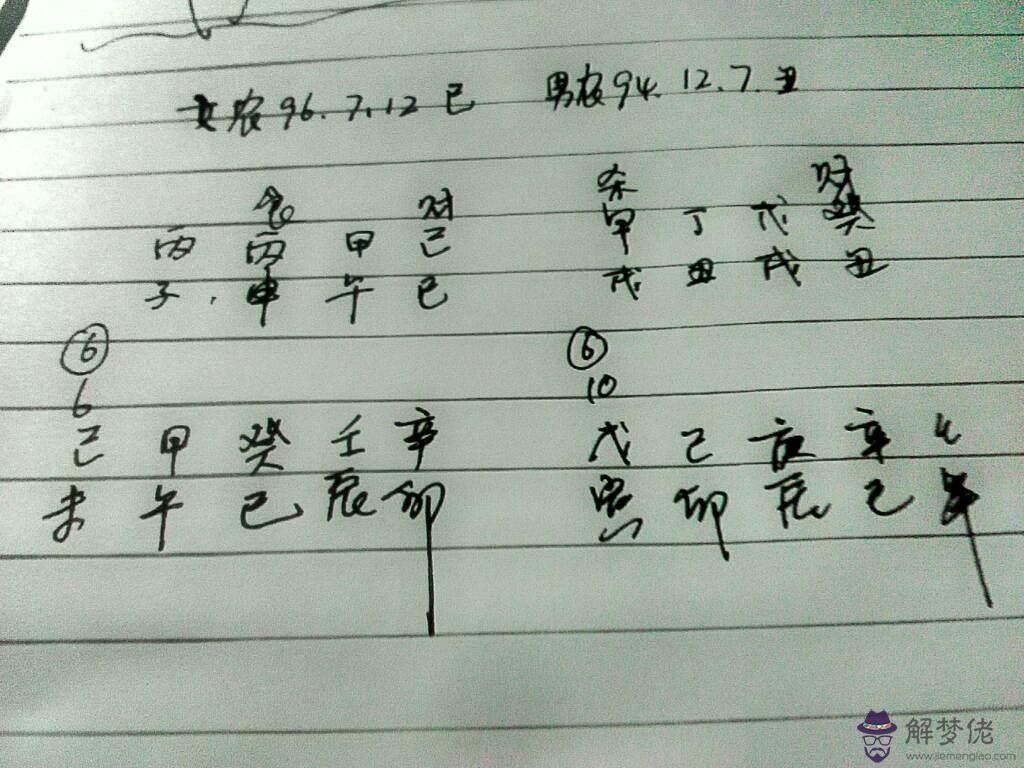 女农96.7.12巳 男农94.12.7.丑
食 财 杀 财
丙 丙 甲 己 甲 丁 戊 癸
子. 申 午 巳 戌 丑 戌 丑
⑥ ⑥
6 10
己 甲 癸 壬 辛 戊 己 辛
未 午 巳 辰 卯 寅 卯 辰 巳
解梦佬
www.jiemenglao.com